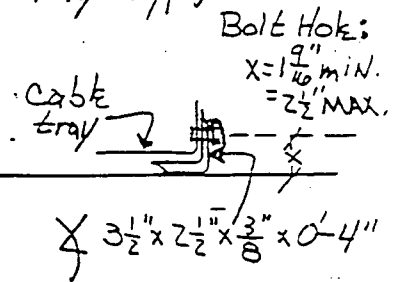 Bolt Hole:
x=1 9/16" min.
=2 1/2" MAX.
cable
tray
x
3 1/2" x 2 1/2" x 3/8" x 0'-4"